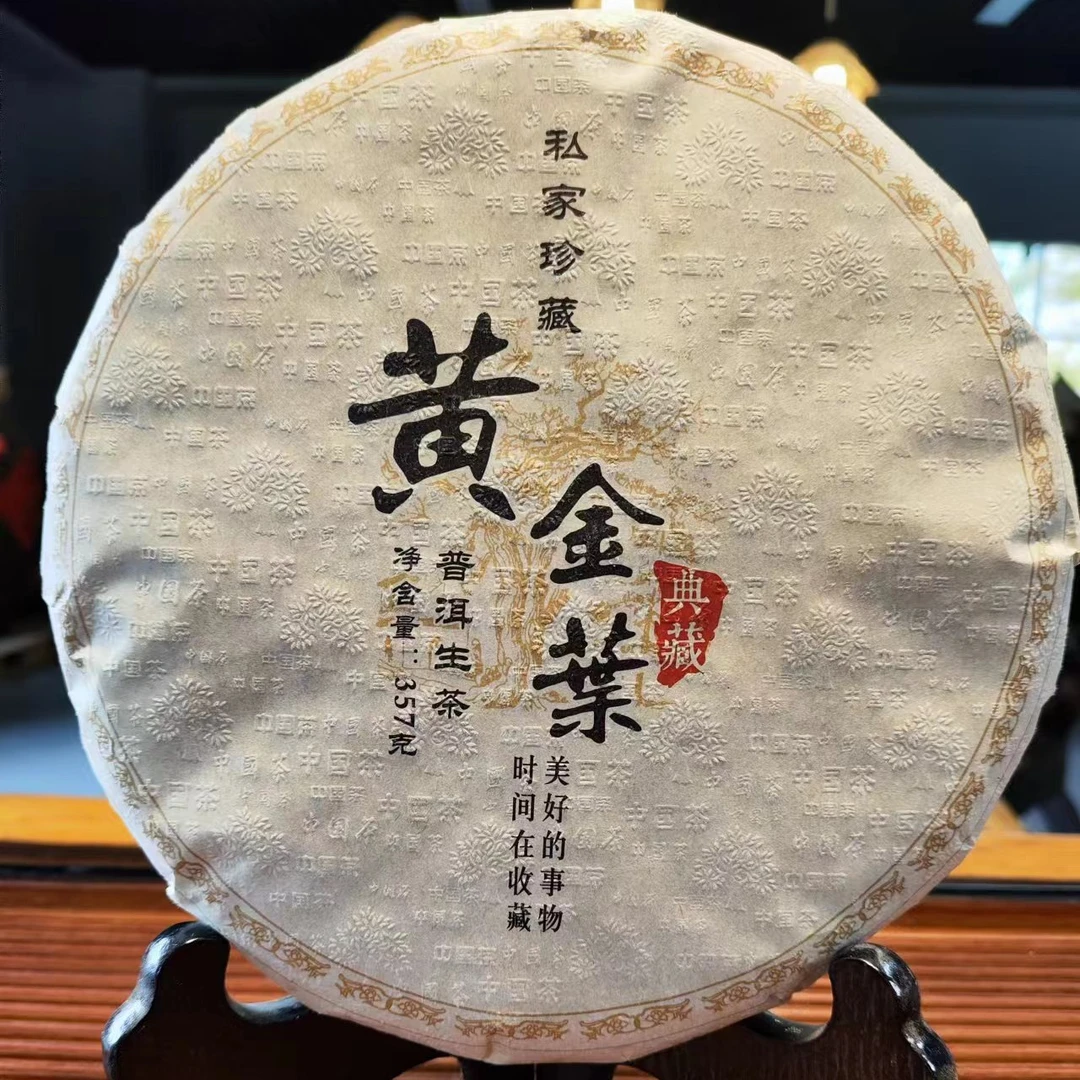 私家珍藏
黄金葉
典藏
普洱生茶
净含量:357克
美好的事物
时间在收藏
中国茶